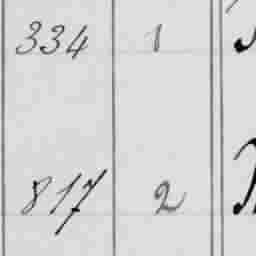 334 1
817 2